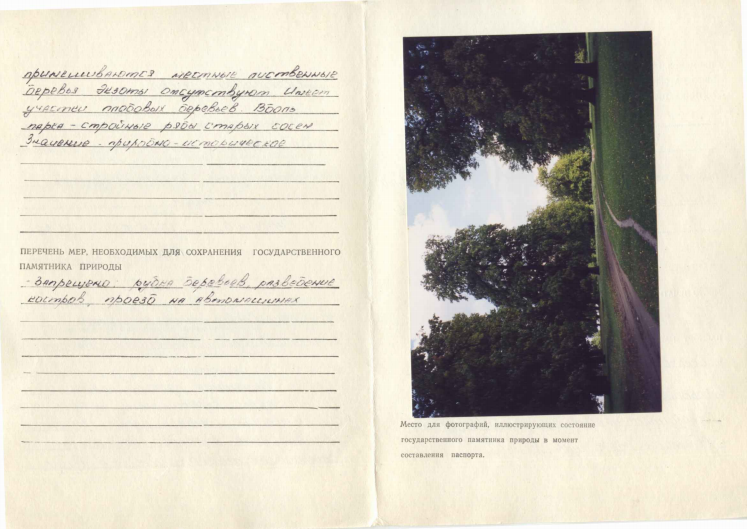 примешиваются местные лиственные
деревья Экзоты отсутствуют. Имеет
участки плодовых деревьев. Вдоль
парка - стройные ряды старых сосен
Значение - природно-историческое
ПЕРЕЧЕНЬ МЕР, НЕОБХОДИМЫХ ДЛЯ СОХРАНЕНИЯ ГОСУДАРСТВЕННОГО
ПАМЯТНИКА ПРИРОДЫ
- Запрещена: рубка деревьев, разведение
костров, проезд на автомашинах
Место для фотографий, иллюстрирующих состояние
государственного памятника природы в момент
составления паспорта.